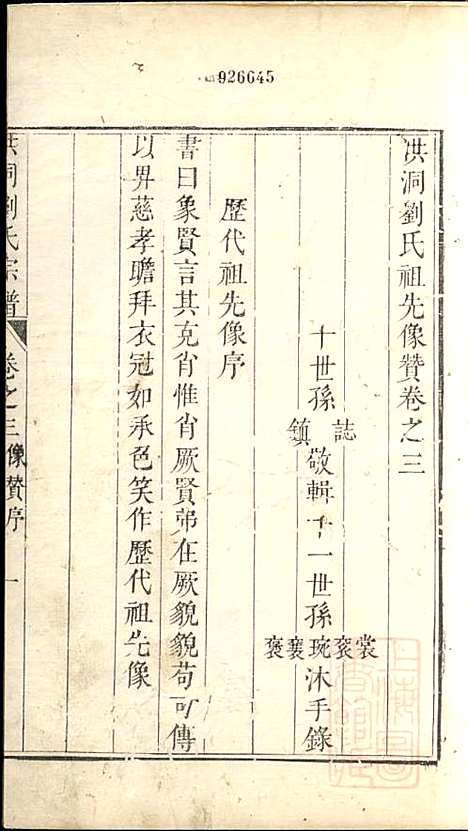 926645
洪洞劉氏祖先像贊卷之三
十世孫誌鎮敬輯十一世孫裳袞琬襄褒沐手錄
歷代祖先像序
書曰象賢言其克肖惟肖厥賢弗在厥貌貌苟可傳
以畀慈孝瞻拜衣冠如承色笑作歷代祖先像
洪洞劉氏宗譜 卷之三像贊序 一